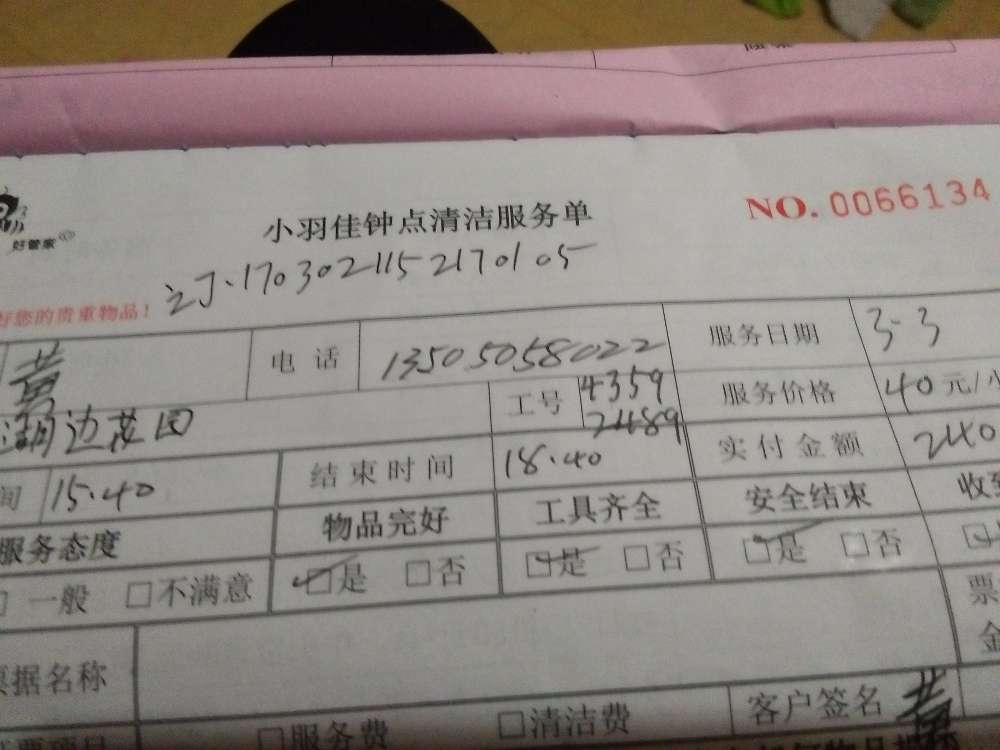 小羽佳钟点清洁服务单 NO. 0066134
好管家
1703021152170105
好您的贵重物品!
黄 电话 13505058022 服务日期 3-3
湖边花园 工号 4359 2489 服务价格 40元/小
间 15.40 结束时间 18.40 实付金额 240
服务态度 物品完好 工具齐全 安全结束 收到
□一般 □不满意 □是 □否 □是 □否 □是 □否
票据名称 票
金
□服务费 □清洁费 客户签名 黄